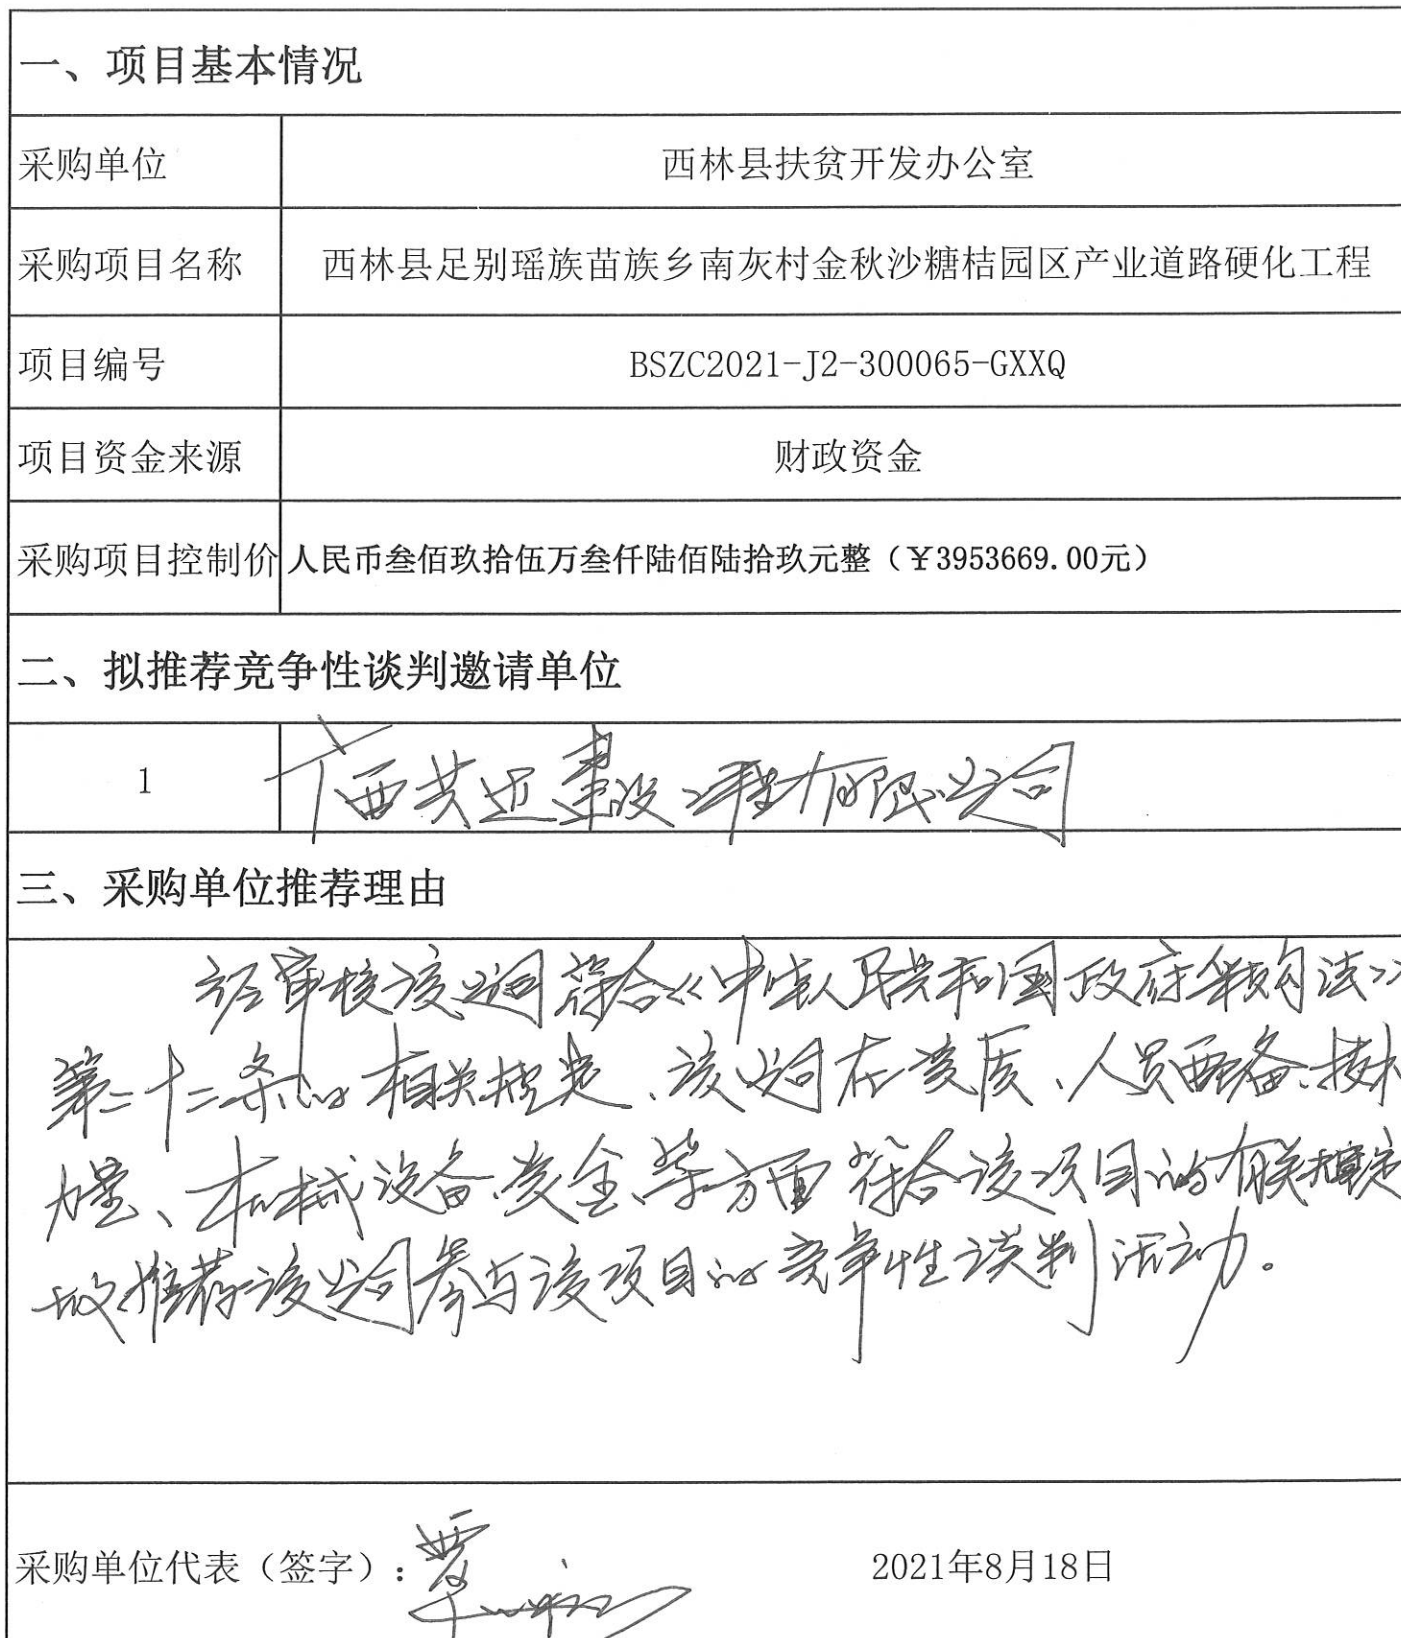 一、项目基本情况
采购单位 西林县扶贫开发办公室
采购项目名称 西林县足别瑶族苗族乡南灰村金秋沙糖桔园区产业道路硬化工程
项目编号 BSZC2021-J2-300065-GXXQ
项目资金来源 财政资金
采购项目控制价 人民币叁佰玖拾伍万叁仟陆佰陆拾玖元整（￥3953669.00元）
二、拟推荐竞争性谈判邀请单位
1 广西共迈建设工程有限公司
三、采购单位推荐理由
经审核该公司符合《中华人民共和国政府采购法》
第二十二条的相关规定、该公司在资质、人员配备、技术
力量、机械设备、资金、等方面符合该项目的有关规定
故推荐该公司参与该项目的竞争性谈判活动。
采购单位代表（签字）：覃 2021年8月18日